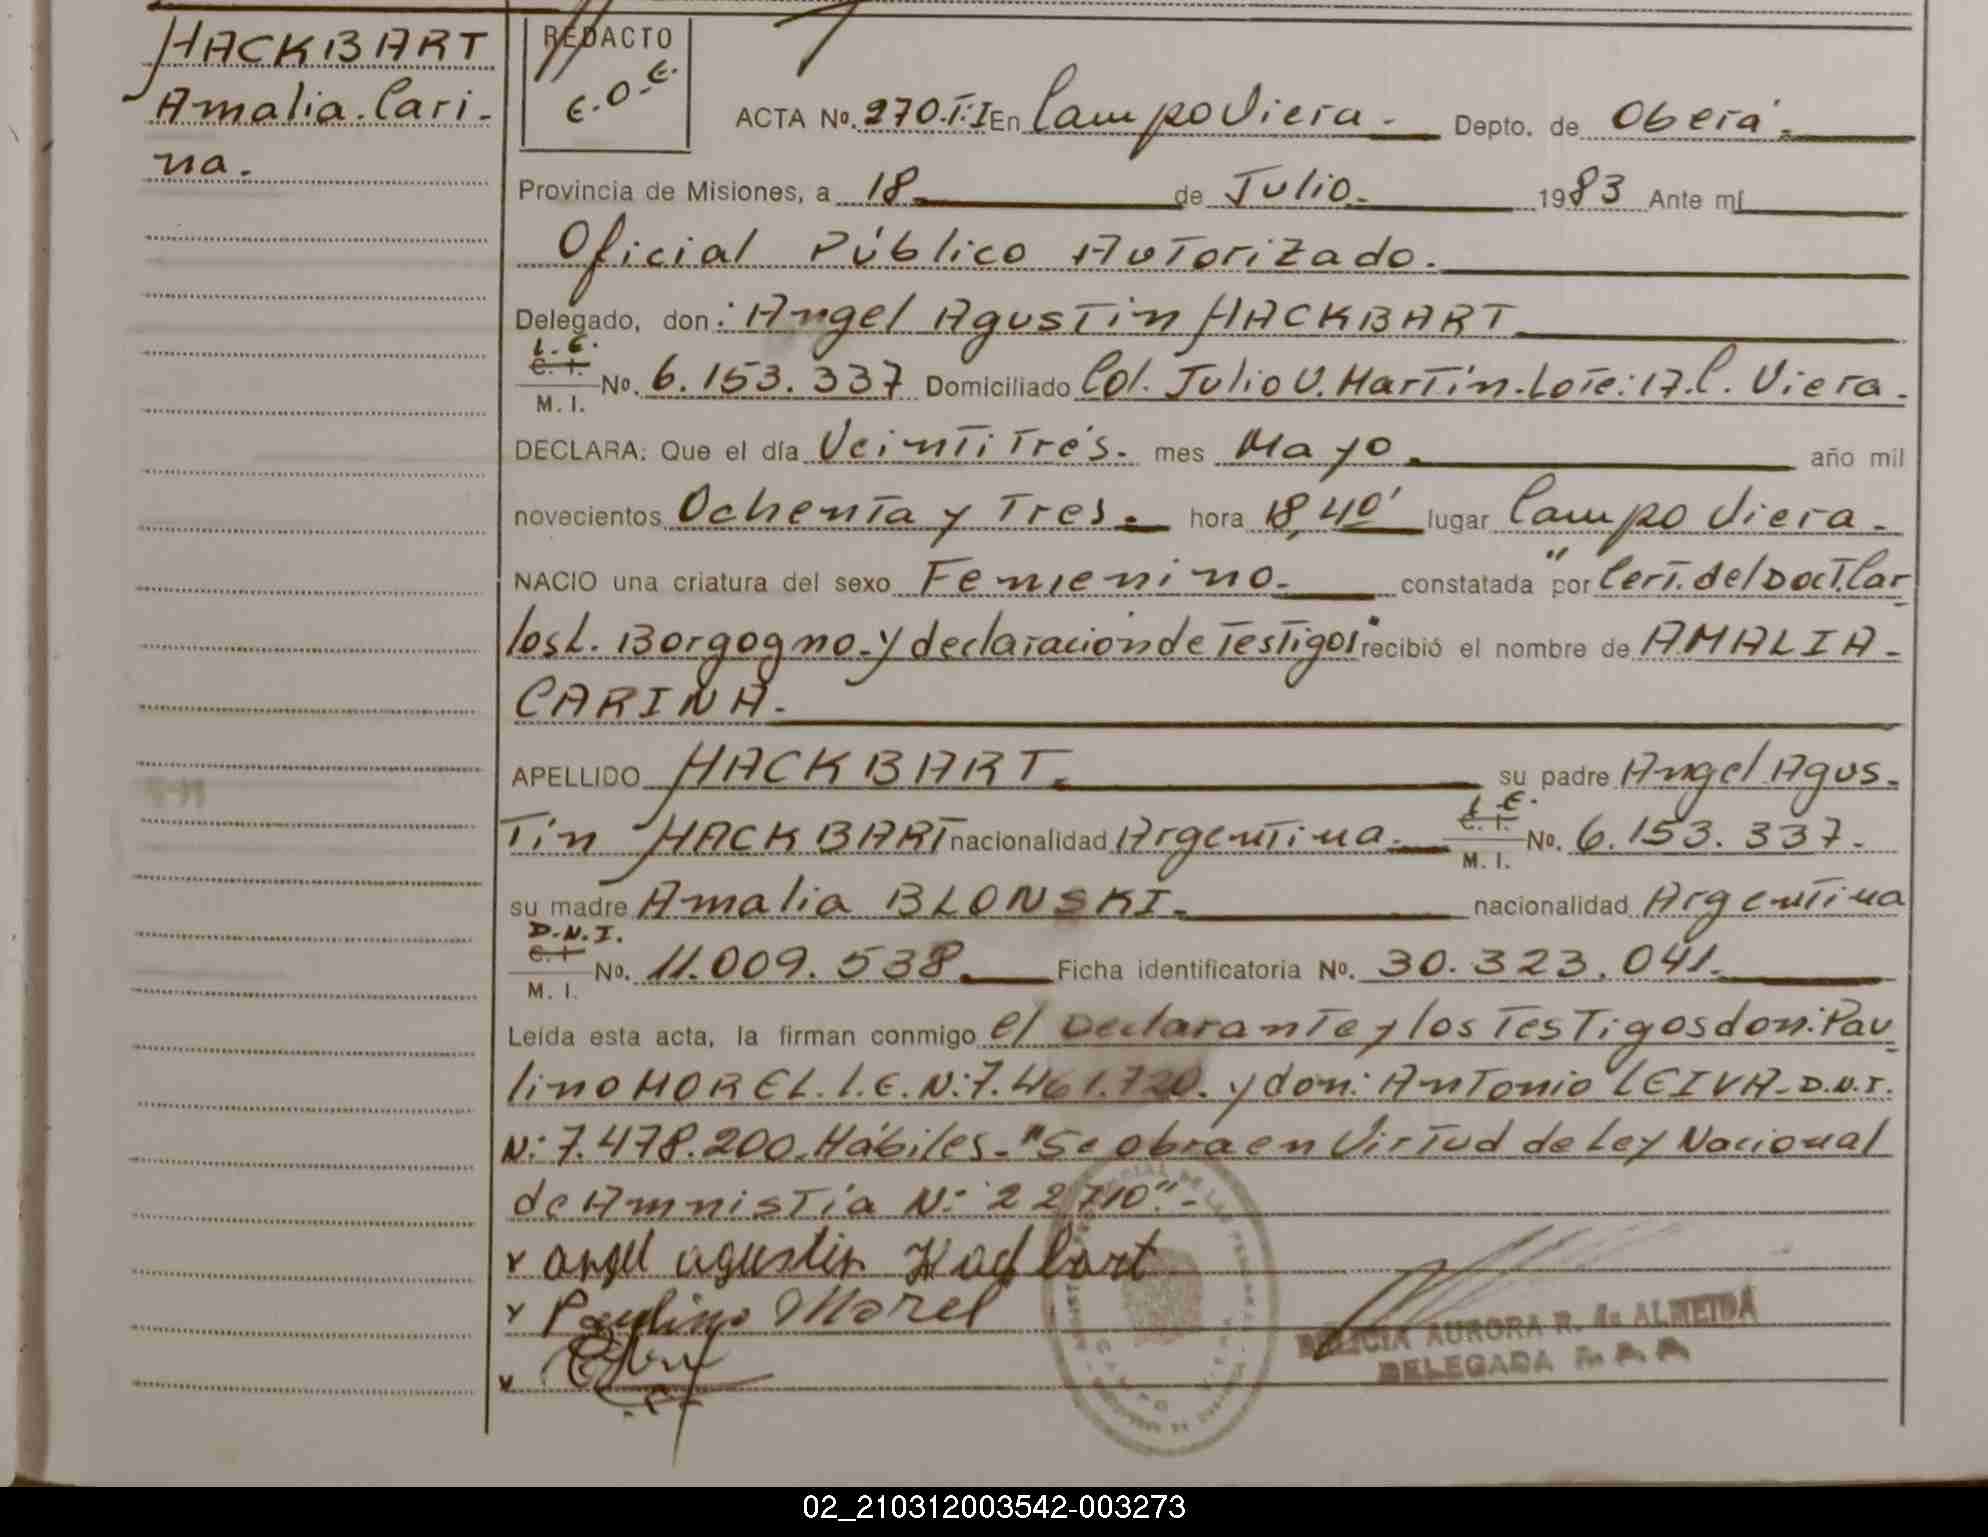 HACKBART
Amalia Cari-
na.
REDACTO
E.O.E.
ACTA No. 270.T:I En Campo Viera.- Depto. de Oberá.-
Provincia de Misiones, a 18.- de Julio.- 1983 Ante mí
Oficial Público Autorizado.
Delegado, don: Angel Agustin HACKBART
L.E.
C. I.
M. I.
No. 6.153.337 Domiciliado Col. Julio U. Martín.Lote:17.C. Viera.
DECLARA: Que el día Veintitrés.- mes Mayo. año mil
novecientos Ochenta y Tres.- hora 18,40' lugar Campo Viera.-
NACIO una criatura del sexo Femenino.- constatada "por Cert. del Doct. Car
los L. Borgogno.y declaración de Testigos" recibió el nombre de AMALIA-
CARINA.-
APELLIDO HACKBART. su padre Angel Agus-
Tin HACKBART nacionalidad Argentina.- L.E.
C. I.
M. I.
No. 6.153.337.-
su madre Amalia BLONSKI.- nacionalidad Argentina
D.N.I.
C. I
M. I.
No. 11.009.538. Ficha identificatoria No. 30.323.041.-
Leída esta acta, la firman conmigo el Declarante y los Testigos don:Pau
lino MOREL.L.E.N:7.461.720.y don: Antonio LEIVA-D.N.I.
N:7.478.200.Hábiles.-"Se obra en Virtud de Ley Nacional
de Amnistía N:22710".-
x angel agustin Hackbart
x Paulino Morel
x
AURORA R. de ALMEIDA
DELEGADA
02_210312003542-003273